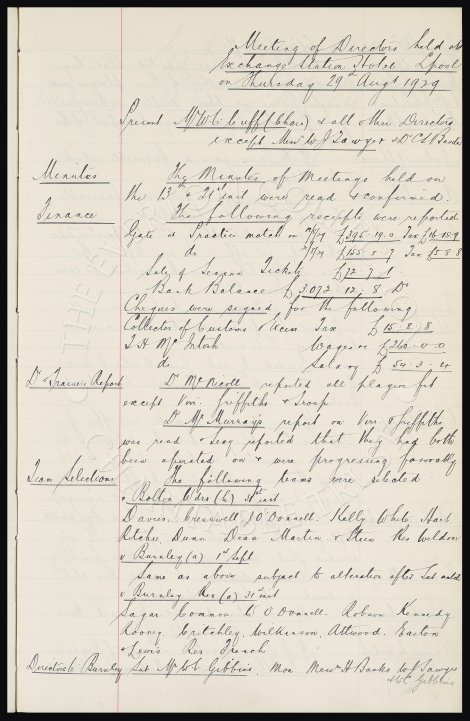 Meeting of Directors held at
Exchange Station Hotel L'pool
on Thursday 29th Augst 1929
Present Mr W.C. Cuff (Chair) & all other Directors
except Messrs W.J. Sawyer & Dr C.S. Baxter
Minutes
The Minutes of Meetings held on
the 13th & 21st inst were read & confirmed.
Finance
The following receipts were reported
Gate a/c Practice match on £395.19.0 Tax
do £155. Tax £5 8 8
Sale of Season Tickets £72.7.1
Bank Balance £3,072.12.8 Dr
Cheques were signed for the following
Collector of Customs & Excise Tax £15.8.8
T H McIntosh Wages a/c £260.0.0
do Salary £54.3.4
Dr & Trainers Report
Dr McNicoll reported all players fit
except Virr. Griffiths & Troup.
Dr McMurrays report on Virr & Griffiths
was read & they reported that they had both
been operated on & were progressing favorably
Team Selections
The following teams were selected
v Bolton Wdrs (h) 31st inst
Davies. Cresswell J O'Donnell. Kelly White. Hart.
Ritchie. Dunn Dean Martin & Stein Res Weldon
v Burnley (a) 1st Sept
Same as above subject to alteration after Sat match
v Burnley Res (a) 31st inst
Sagar. Common W O'Donnell. Robson. Kennedy.
Rooney. Critchley. Wilkinson. Attwood. Easton
& Lewis Res French
Directors to Burnley Sat Mr W.C. Gibbins. Mon Messrs H Banks W J Sawyer
& W C Gibbins